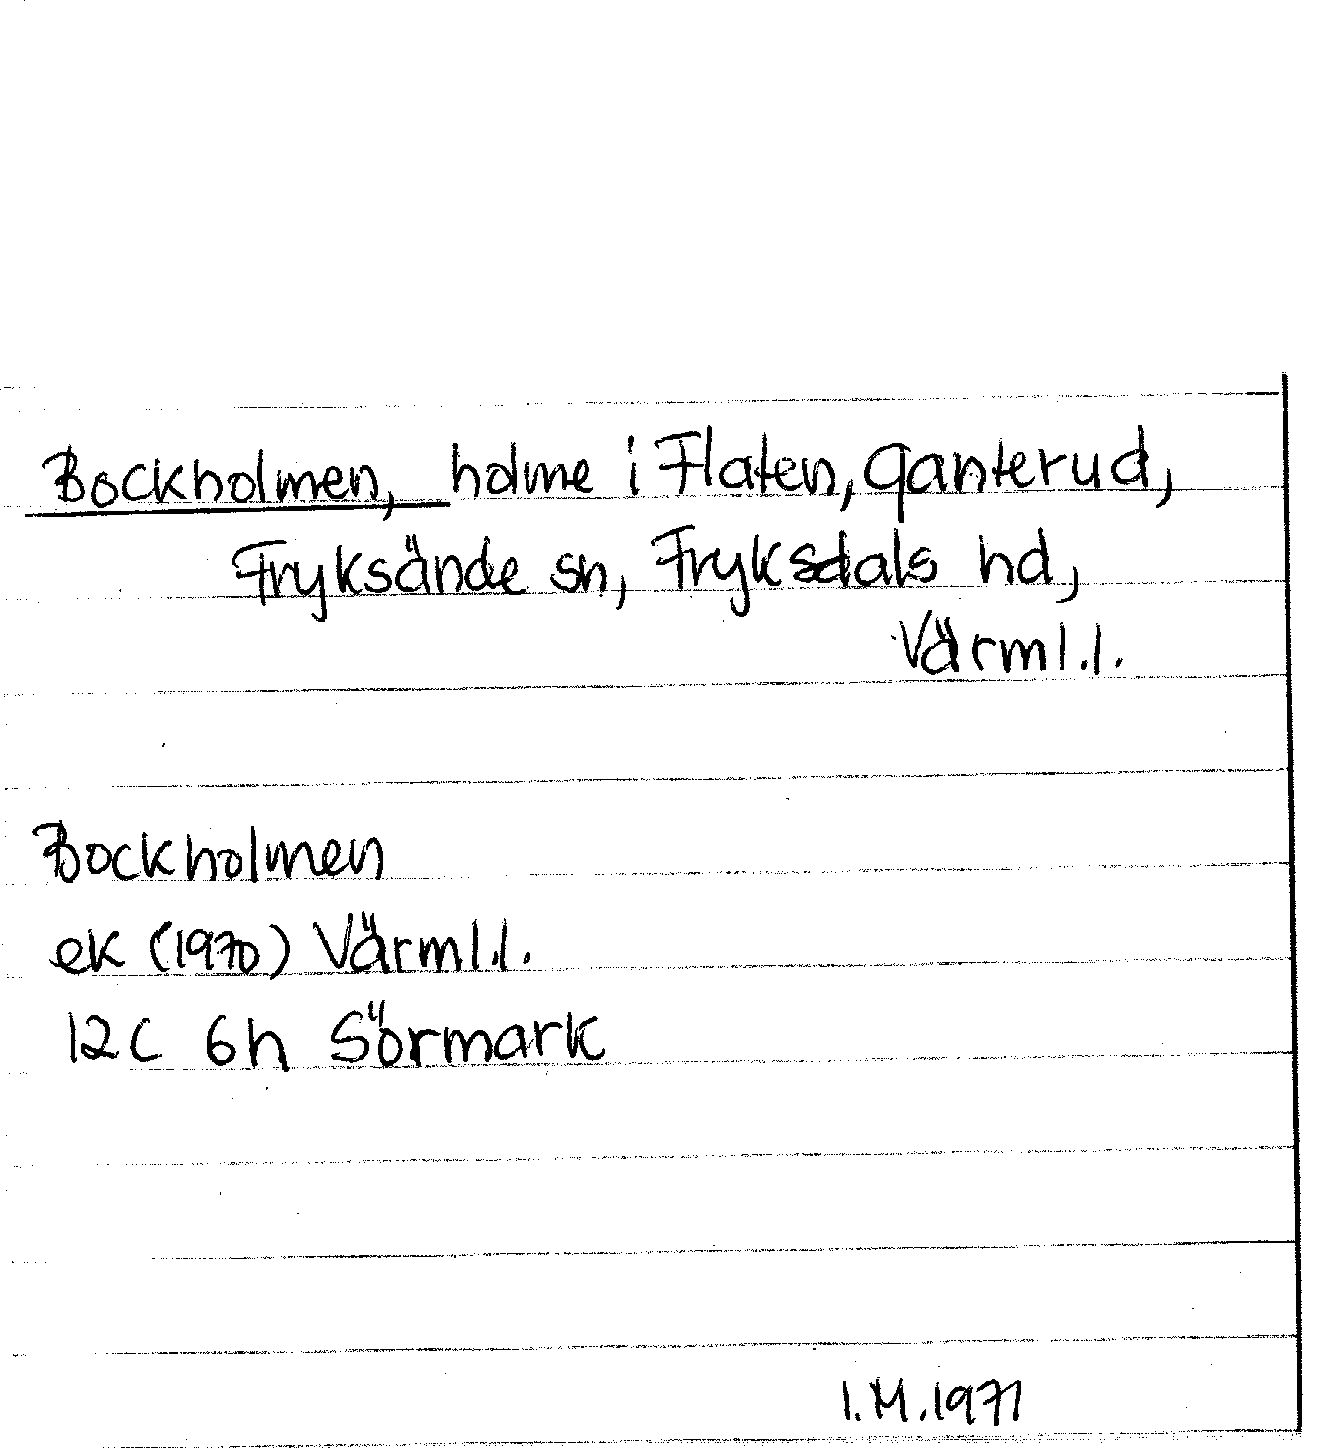 Bockholmen, holme i Flaten, Qanterud,
Fryksände sn, Fryksdals hd,
Värml.l.
Bockholmen
ek (1970) Värml.l.
12C 6h Sörmark
I.M.1971